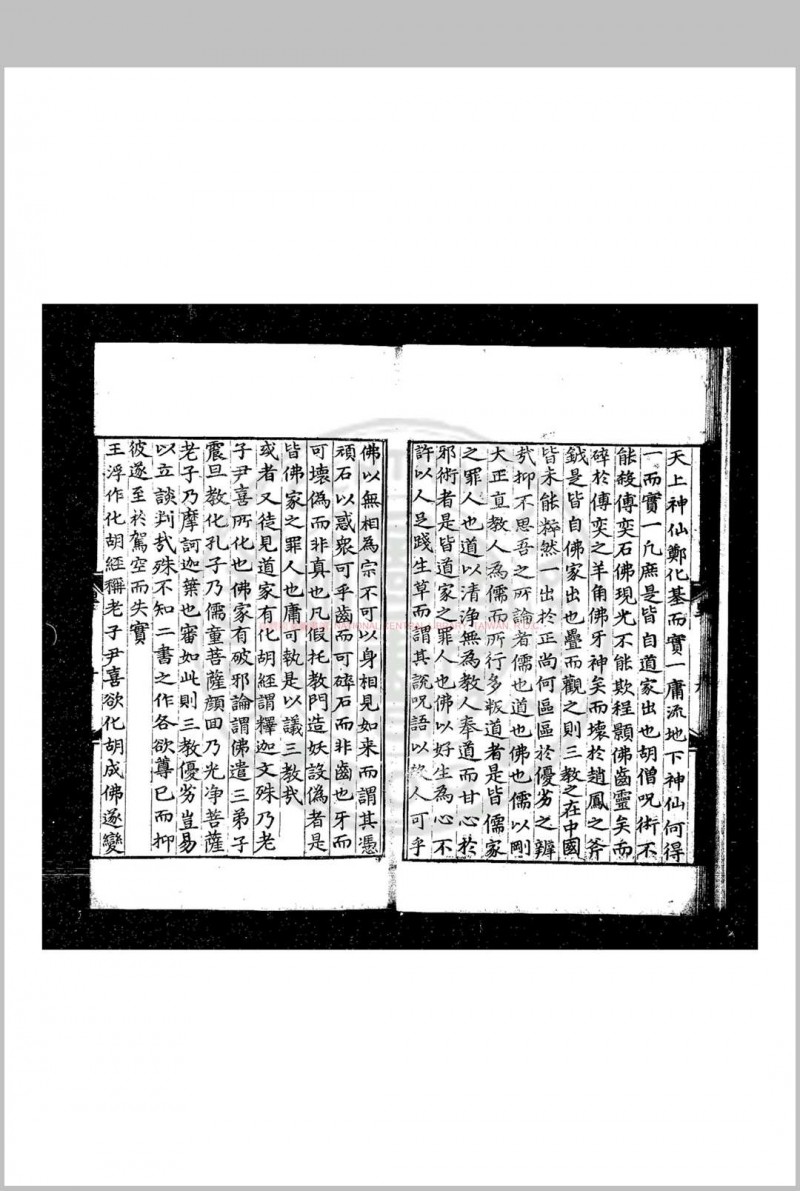 天上神仙鄭化基而實一庸流地下神仙何得
一而實一凡庶是皆自道家出也胡僧呪術不
能殺傅奕石佛現光不能欺程顥佛齒靈矣而
碎於傅奕之羊角佛牙神矣而壞於趙鳳之斧
鉞是皆自佛家出也疊而觀之則三教之在中國
皆未能粹然一出於正尚何區區於優劣之辨
㢤抑不思吾之所論者儒也道也佛也儒以剛
大正直教人為儒而所行多叛道者是皆儒家
之罪人也道以清淨無為教人奉道而甘心於
邪術者是皆道家之罪人也佛以好生為心不
許以人足踐生草而謂其説呪語以殺人可乎
佛以無相為宗不可以身相見如来而謂其憑
頑石以惑衆可乎齒而可碎石而非齒也牙而
可壊偽而非真也凡假托教門造妖設偽者是
皆佛家之罪人也庸可執是以議三教㢤
或者又徒見道家有化胡經謂釋迦文殊乃老
子尹喜所化也佛家有破邪論謂佛遣三弟子
震旦教化孔子乃儒童菩薩顔回乃光净菩薩
老子乃摩訶迦葉也審如此則三教優劣豈易
以立談判㢤殊不知二書之作各欲尊已而抑
彼遂至於駕空而失實
王浮作化胡經稱老子尹喜欲化胡成佛遂變